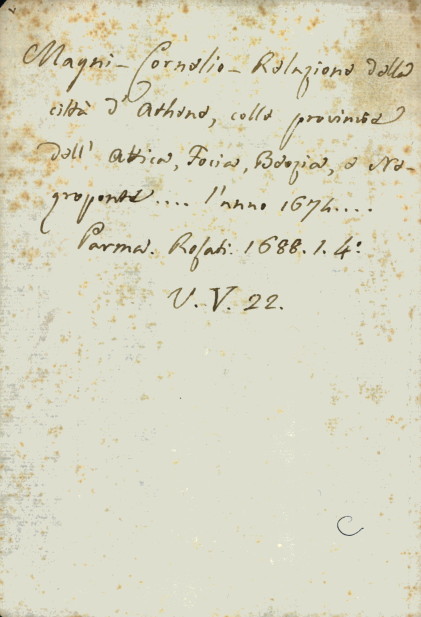 Magni - Cornelio - Relazione della
città d' Athene, colle provincie
dell' Attica, Focia, Beozia, e Ne-
groponte .... l'anno 1674....
Parma. Rosati. 1688. 1. 4°.
V. V. 22.
C